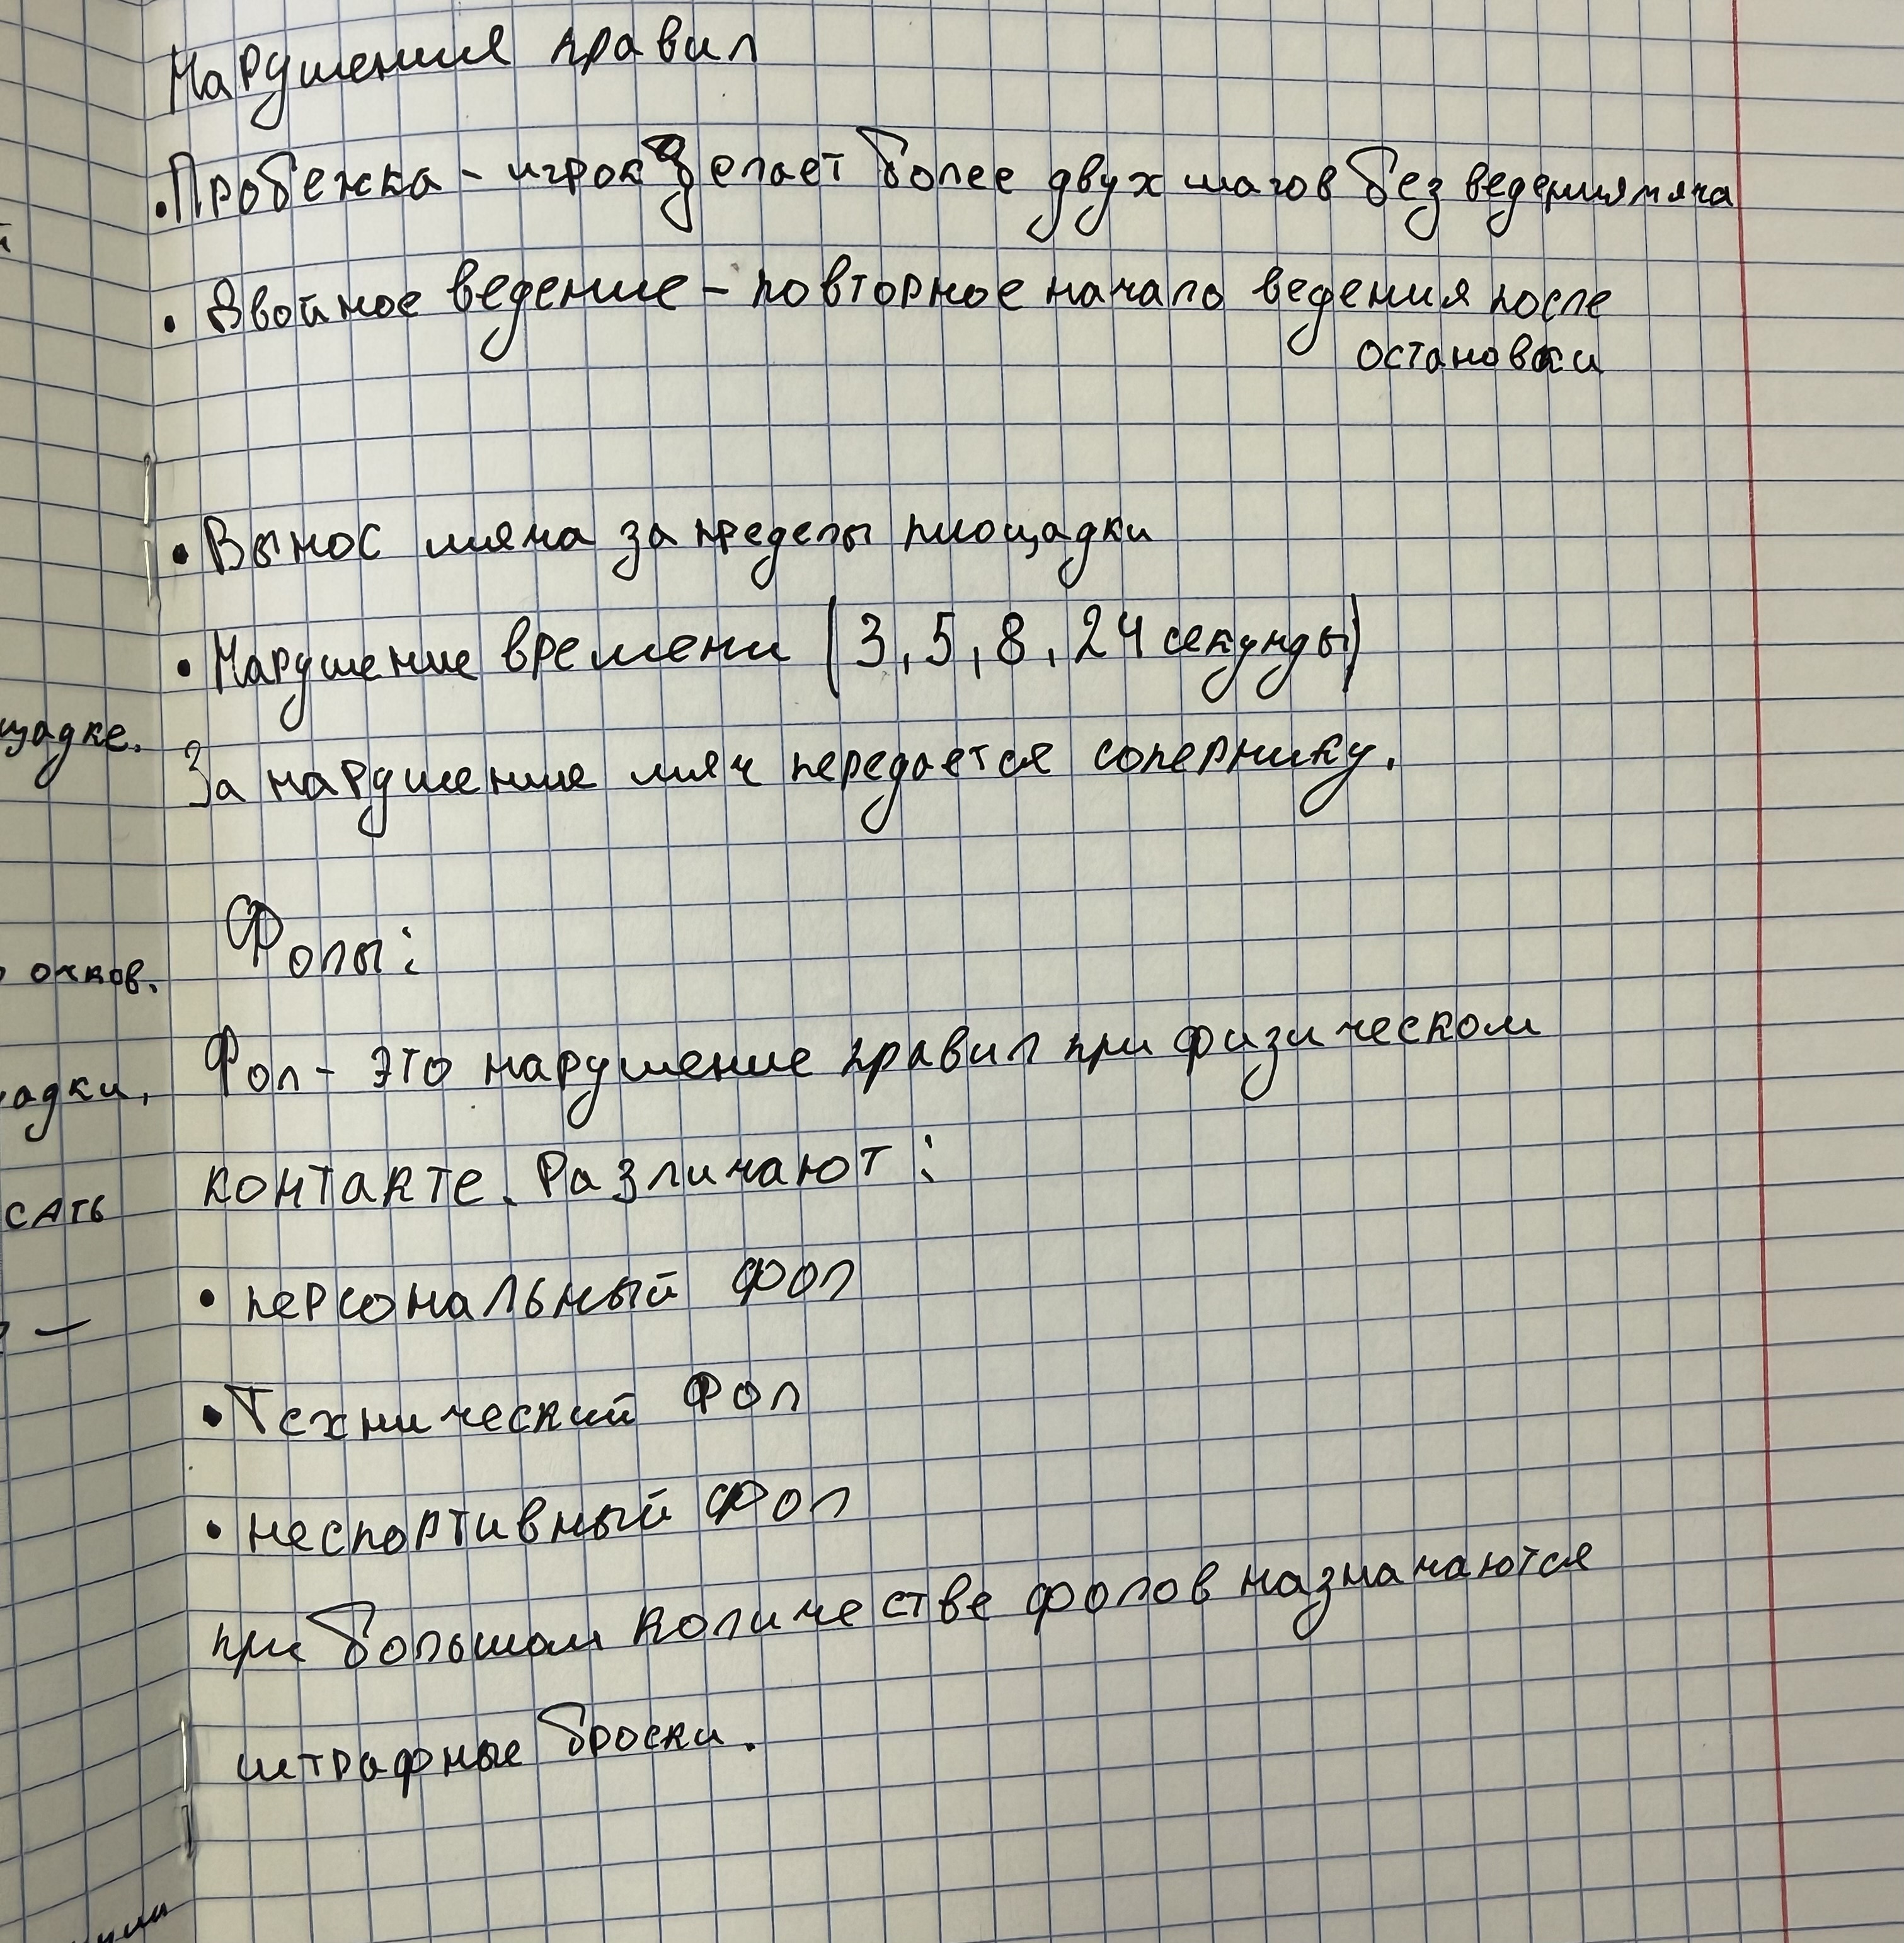 Нарушения правил
• Пробежка - игрок делает более двух шагов без ведения мяча
• Двойное ведение - повторное начало ведения после
остановки
• Вынос мяча за пределы площадки
• Нарушение времени (3, 5, 8, 24 секунды)
щадке.
За нарушение мяч передается сопернику.
Фолы:
очков.
Фол - это нарушение правил при физическом
адки,
контакте. Различают:
сать
• персональный фол
• Технический фол
• неспортивный фол
при большом количестве фолов назначаются
штрафные броски.